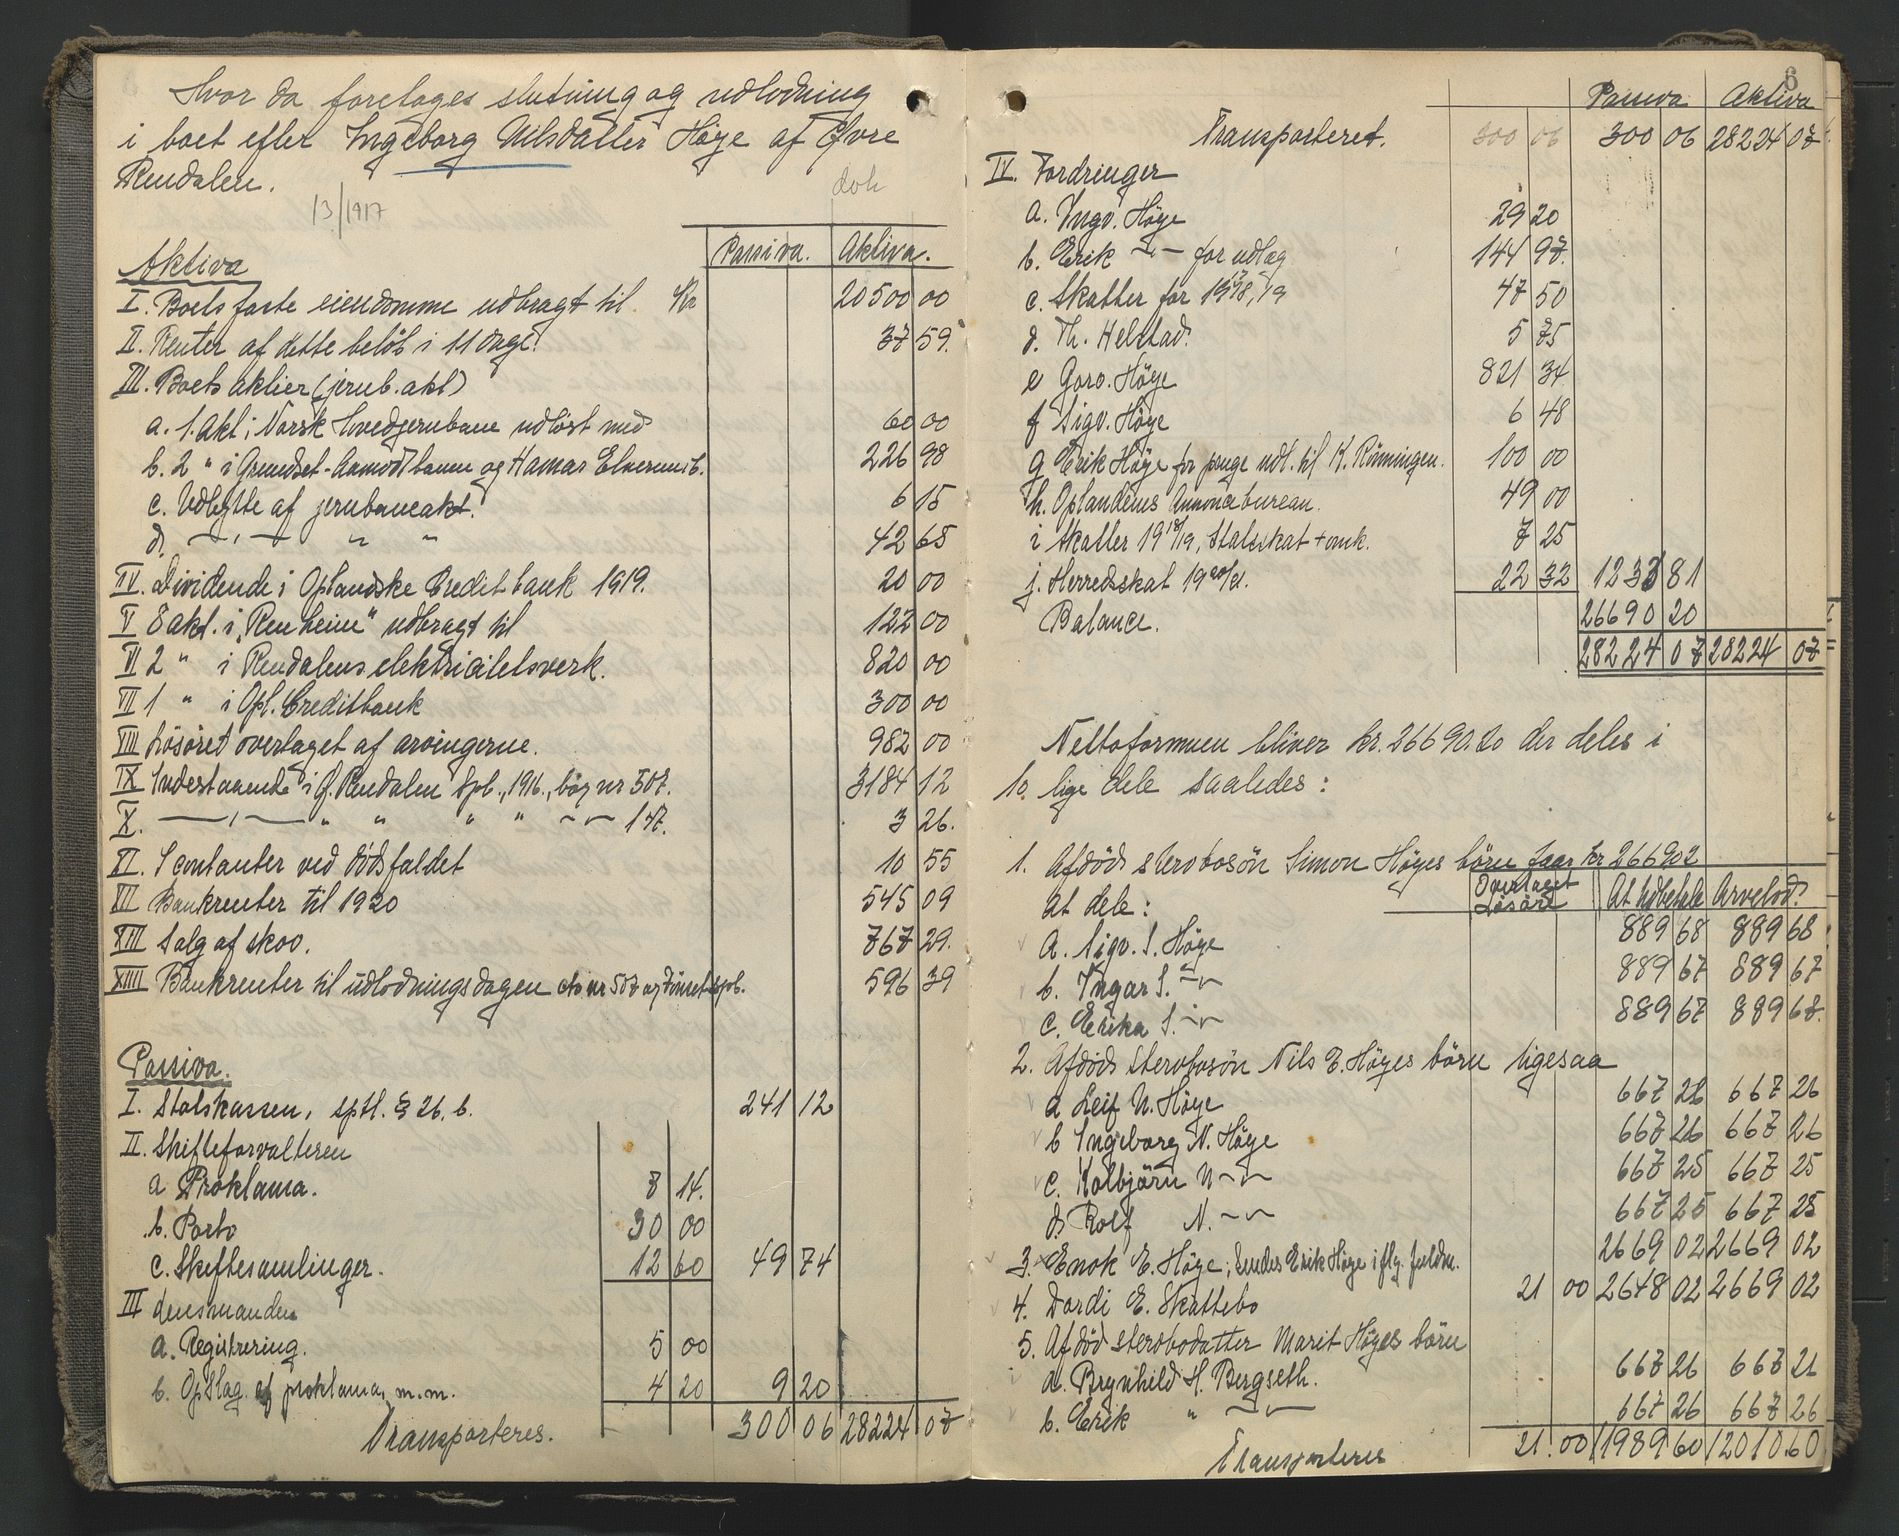 Hvor da foretages slutning og udlodning
i boet efter Ingeborg Nilsdatter Høye af Øvre
Rendalen.
13/1917
dok
Passiva. Aktiva.
Aktiva
I. Boets faste eiendomme udbragt til Kr 20500 00
II. Renter af dette beløb i 11 dage. 37 59.
III. Boets aktier (jernb. akt)
a. 1. Akt i Norsk Hovedjernbane udløst med 60 00
b. 2 " i Grundset-Aamodtbanen og Hamar Elverumsb. 226 98
c. Udbytte af jernbaneakt. 6 15
d. —,— " " 42 65
IV. Dividende i Oplandske Creditbank 1919. 20 00
V 8 akt. i "Renheim" udbragt til 122 00
VI 2 " i Rendalens elektricitetsverk. 820 00
VII 1 " i Opl. Creditbank 300 00
VIII Løsøret overtaget af arvingerne. 982 00
IX Indestaaende i Ø. Rendalen Spb., 1916., bog nr 507. 3184 12
X. —,— " " " " —"— 147. 3 26.
XI. I contanter ved dødsfaldet 10 55
XII Bankrenter til 1920 545 09
XIII Salg af skov. 767 29.
XIIII Bankrenter til udlodningsdagen cto nr 507 og Tönset Spb. 596 39
Passiva.
I. Statskassen, sptl. § 26. b. 241 12
II. Skifteforvalteren
a Proklama. 7 14.
b. Porto 30 00
c. Skiftesamlinger. 12 60 49 74
III Lensmanden
a. Registrering. 5 00
b. Opslag af proklama, m.m. 4 20 9 20
Transporteres. 300 06 28224 07
6
Passiva Aktiva
Transporteret. 300 06 300 06 28224 07
IV. Fordringer
a. Ingv. Höye 29 20
b. Erik —"— for udlæg 144 97.
c. Skatter for 19 17/18, 18/19 47 50
d. Th. Helstad. 5 75
e Gorv. Höye 821 34
f Sigv. Höye 6 48
g Erik Höye for penge udt. til K. Rönningen. 100 00
h. Oplandenes Annoncebureau. 49 00
i Skatter 19 18/19, Statsskat + omk. 7 25
j. Herredsskat 19 20/21. 22 32 1233 81
Balance. 26690 20
28224 07 28224 07
Nettoformuen bliver kr. 26690.20 der deles i
10 lige dele saaledes:
1. Afdød stervbosön Simon Höyes börn faar kr 2669 02
Overtaget Løsøre At udbetale Arvelod.
At dele:
a. Sigv. S. Höye 889 68 889 68
b. Ingar S. —"— 889 67 889 67
c. Erika S. —"— 889 67 889 67.
2. Afdöd stervbosön Nils E. Höyes börn ligesaa
a Leif N. Höye 667 26 667 26
b Ingeborg N. Höye 667 26 667 26
c. Kolbjörn N —"— 667 25 667 25
d. Rolf N. —"— 667 25 667 25
3. Enok E. Höye; Sendes Erik Höye iflg. fuldm. 2669 02 2669 02
4. Dordi E. Skattebo 21 00 2648 02 2669 02
5. Afdöd stervbodatter Marit Höyes börn
a. Brynhild H. Bergseth. 667 26 667 26
b. Erik " —"— 667 26 667 26
Transporteres 21.00 11989 60 12010.60